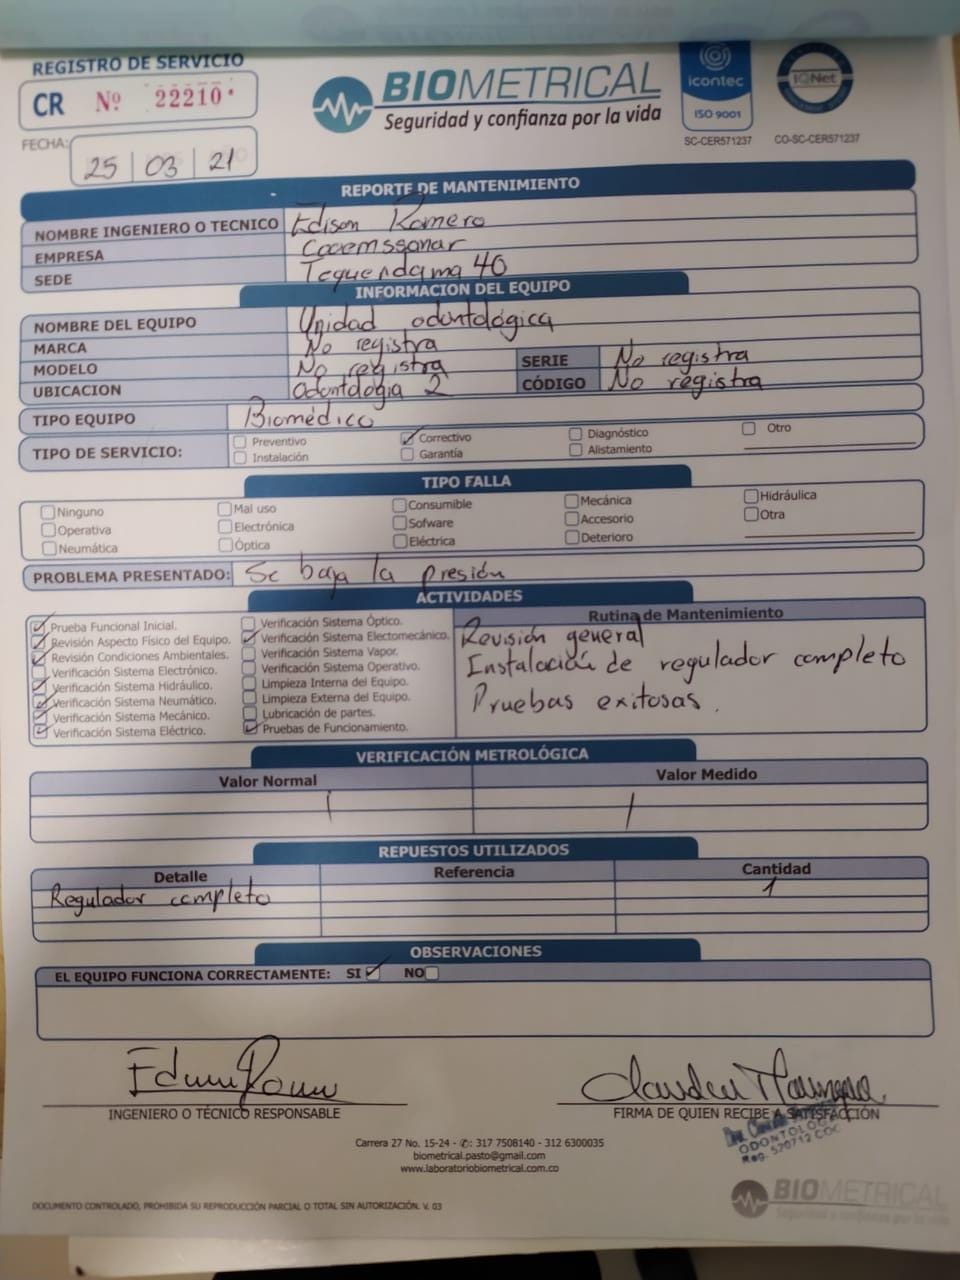 REGISTRO DE SERVICIO
CR Nº 22210
BIOMETRICAL
Seguridad y confianza por la vida
icontec
ISO 9001
SC-CER571237
IQNet
CO-SC-CER571237
FECHA:
25 | 03 | 21
REPORTE DE MANTENIMIENTO
NOMBRE INGENIERO O TECNICO Edison Romero
EMPRESA Coeemssanar
SEDE Tequendama 40
INFORMACION DEL EQUIPO
NOMBRE DEL EQUIPO Unidad odontológica
MARCA No registra
MODELO No registra SERIE No registra
UBICACION Odontologia 2 CÓDIGO No registra
TIPO EQUIPO Biomédico
TIPO DE SERVICIO: Preventivo Correctivo Diagnóstico Otro
Instalación Garantía Alistamiento
TIPO FALLA
Ninguno Mal uso Consumible Mecánica Hidráulica
Operativa Electrónica Sofware Accesorio Otra
Neumática Óptica Eléctrica Deterioro
PROBLEMA PRESENTADO: Se baja la presión
ACTIVIDADES
Prueba Funcional Inicial.
Revisión Aspecto Físico del Equipo.
Revisión Condiciones Ambientales.
Verificación Sistema Electrónico.
Verificación Sistema Hidráulico.
Verificación Sistema Neumático.
Verificación Sistema Mecánico.
Verificación Sistema Eléctrico.
Verificación Sistema Óptico.
Verificación Sistema Electomecánico.
Verificación Sistema Vapor.
Verificación Sistema Operativo.
Limpieza Interna del Equipo.
Limpieza Externa del Equipo.
Lubricación de partes.
Pruebas de Funcionamiento.
Rutina de Mantenimiento
Revisión general
Instalación de regulador completo
Pruebas exitosas.
VERIFICACIÓN METROLÓGICA
Valor Normal Valor Medido
REPUESTOS UTILIZADOS
Detalle Referencia Cantidad
Regulador completo 1
OBSERVACIONES
EL EQUIPO FUNCIONA CORRECTAMENTE: SI NO
INGENIERO O TÉCNICO RESPONSABLE
FIRMA DE QUIEN RECIBE A SATISFACCIÓN
ODONTOLOGA
Reg. 520712 COC
Carrera 27 No. 15-24 - ✆: 317 7508140 - 312 6300035
biometrical.pasto@gmail.com
www.laboratoriobiometrical.com.co
DOCUMENTO CONTROLADO, PROHIBIDA SU REPRODUCCIÓN PARCIAL O TOTAL SIN AUTORIZACIÓN. V. 03
BIOMETRICAL
Seguridad y confianza por la vida